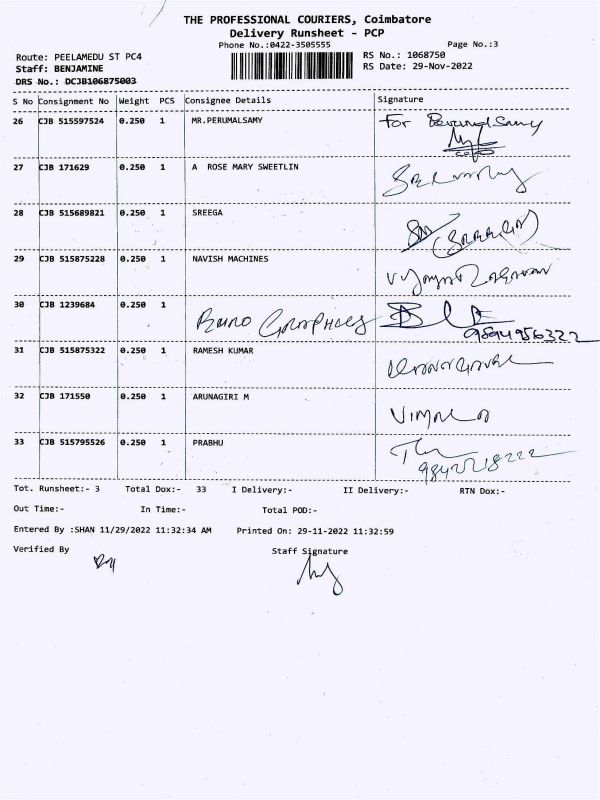 THE PROFESSIONAL COURIERS, Coimbatore
Delivery Runsheet - PCP
Phone No.:0422-3505555 Page No.:3
Route: PEELAMEDU ST PC4 RS No.: 1068750
Staff: BENJAMINE RS Date: 29-Nov-2022
DRS No.: DCJB106875003
S No Consignment No Weight PCS Consignee Details Signature
26 CJB 515597524 0.250 1 MR.PERUMALSAMY For Perumal Samy
27 CJB 171629 0.250 1 A ROSE MARY SWEETLIN
28 CJB 515689821 0.250 1 SREEGA
29 CJB 515875228 0.250 1 NAVISH MACHINES
30 CJB 1239684 0.250 1 Graphics
9894956322
31 CJB 515875322 0.250 1 RAMESH KUMAR
32 CJB 171550 0.250 1 ARUNAGIRI M
33 CJB 515795526 0.250 1 PRABHU
9842218222
Tot. Runsheet:- 3 Total Dox:- 33 I Delivery:- II Delivery:- RTN Dox:-
Out Time:- In Time:- Total POD:-
Entered By :SHAN 11/29/2022 11:32:34 AM Printed On: 29-11-2022 11:32:59
Verified By Staff Signature